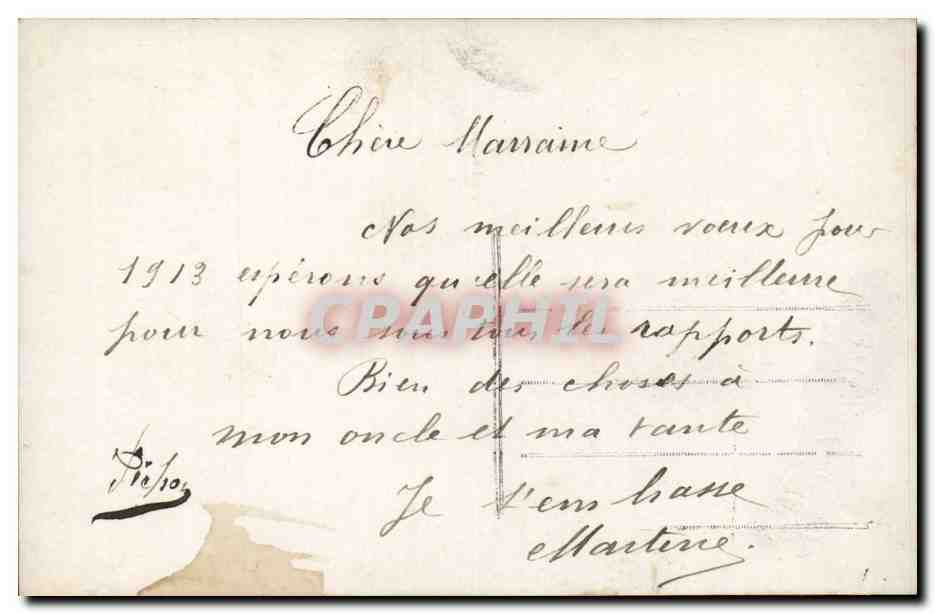 Chère Marraine
Nos meilleurs vœux pour
1913 espérons qu'elle sera meilleure
pour nous sous tous les rapports.
CPAPHIL
Bien des choses à
mon oncle et ma tante
Je t'embrasse
Martine.